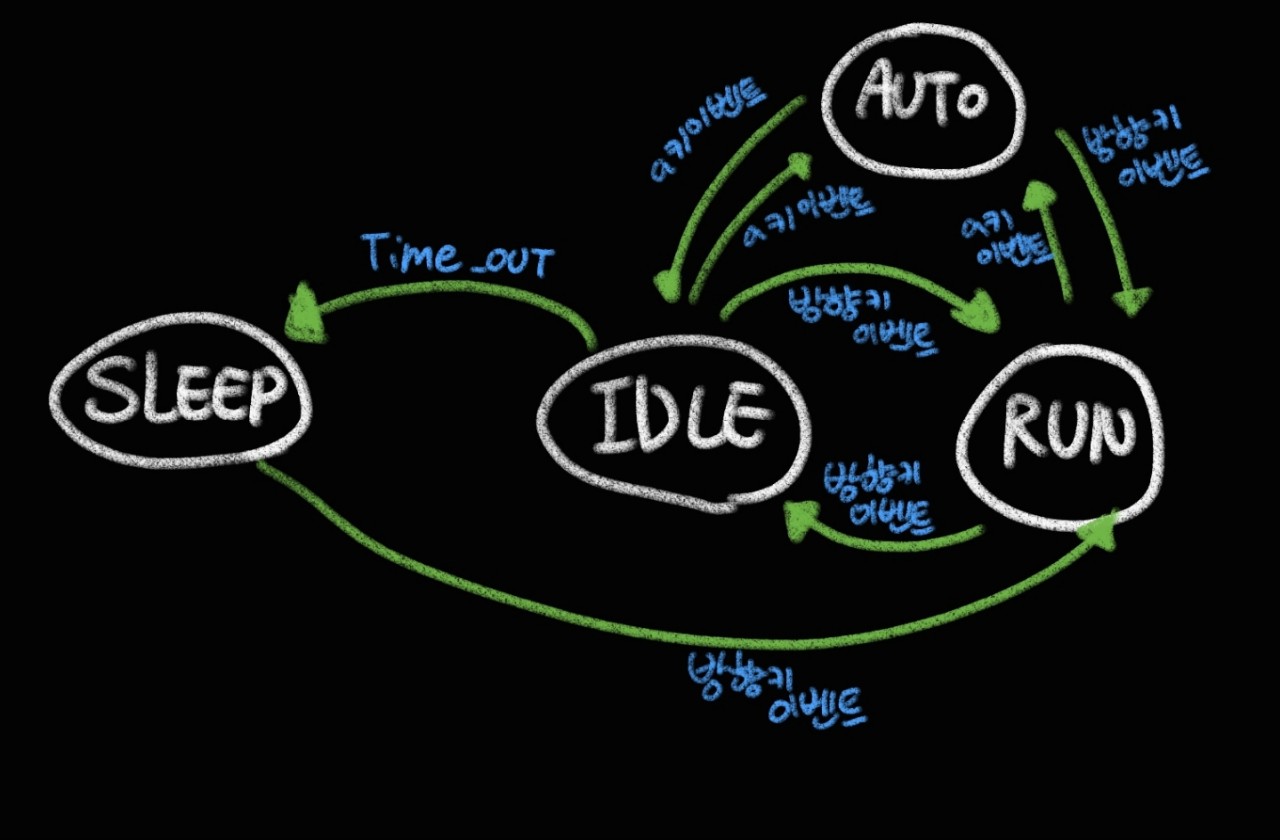 AUTO
a키이벤트
방향키
이벤트
a키이벤트
a키
이벤트
Time_OUT
방향키
이벤트
SLEEP
IDLE
RUN
방향키
이벤트
방향키
이벤트